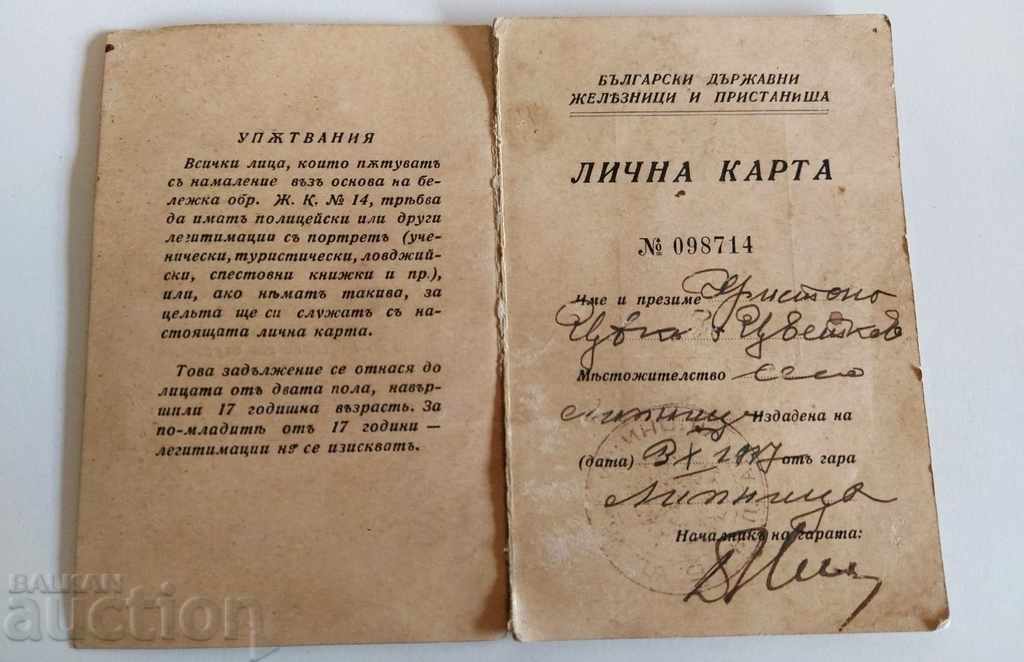 УПѪТВАНИЯ
Всички лица, които пѫтуватъ
съ намаление възъ основа на бе-
лежка обр. Ж. К. № 14, трѣбва
да иматъ полицейски или други
легитимации съ портретъ (уче-
нически, туристически, ловджий-
ски, спестовни книжки и пр.),
или, ако нѣматъ такива, за
цельта ще си служатъ съ на-
стоящата лична карта.
Това задължение се отнася до
лицата отъ двата пола, навър-
шили 17 годишна възрасть. За
по-младитѣ отъ 17 години —
легитимации не се изискватъ.
БЪЛГАРСКИ ДЪРЖАВНИ
ЖЕЛѢЗНИЦИ И ПРИСТАНИЩА
ЛИЧНА КАРТА
№ 098714
Име и презиме
Цвѣтков
Мѣстожителство село
Липница Издадена на
(дата) отъ гара
Липница
Началникъ на гарата:
БАЛКАН
auction